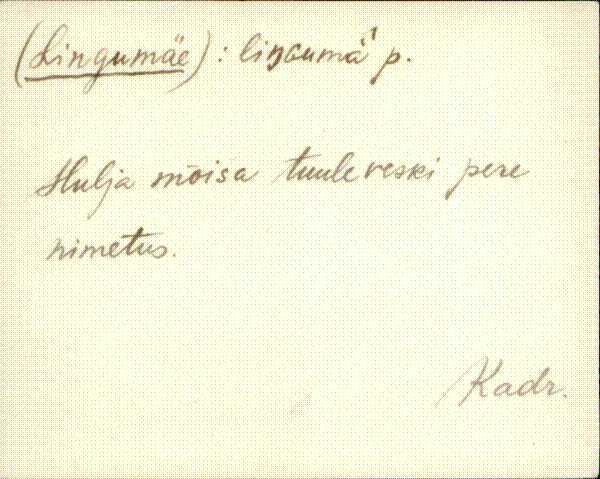 (Lingumäe): liŋɢumä̀ p.
Hulja mõisa tuuleveski pere
nimetus.
Kadr.